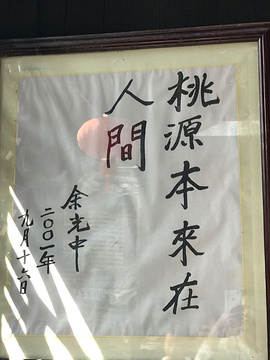 桃源本來在
人間
余光中
二〇〇一年
九月十六日